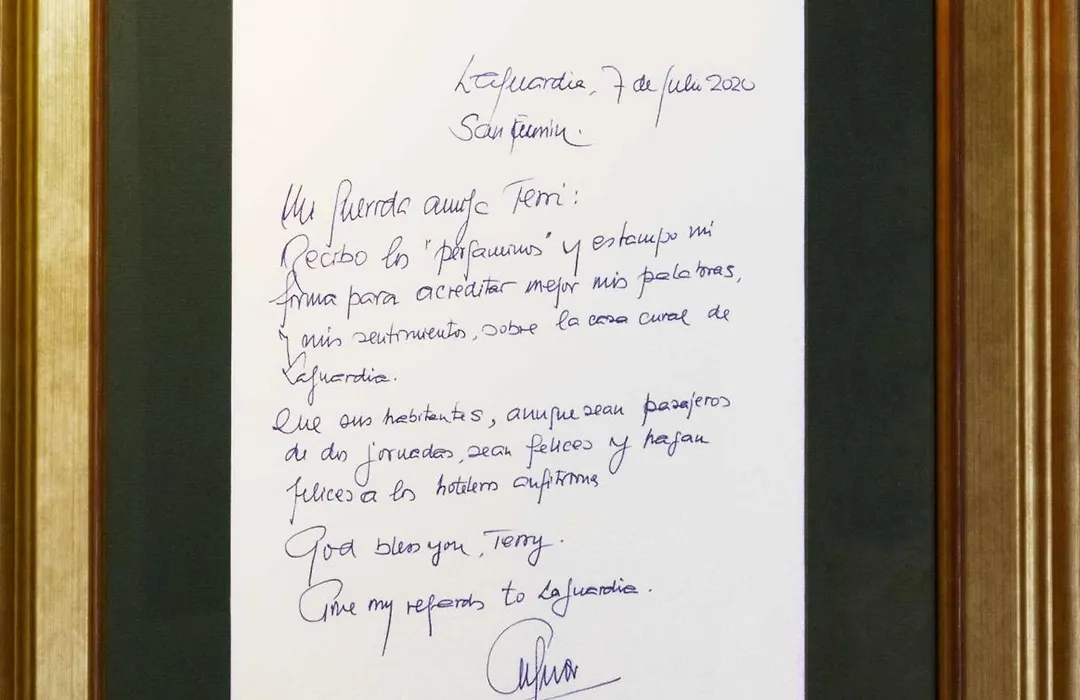 Laguardia, 7 de Julio 2020
San Fermin.
Mi querida amiga Terri:
Recibo los "pergaminos" y estampo mi
firma para acreditar mejor mis palabras,
y mis sentimientos, sobre la casa cural de
Laguardia.
Que sus habitantes, aunque sean pasajeros
de dos jornadas, sean felices y hagan
felices a los hoteleros anfitriones
God bless you, Terry.
Give my regards to Laguardia.